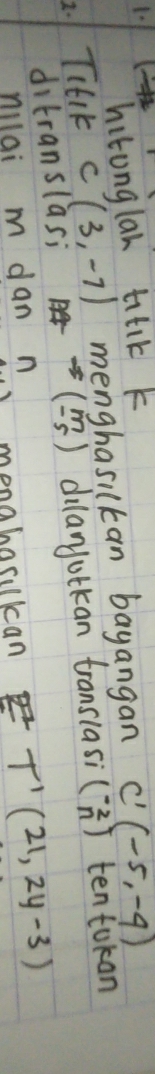 1.
hitunglah titik k
2. Titik C (3, -7) menghasilkan bayangan C' (-5, -4)
ditranslasi (m -5) dilanjutkan translasi (-2 n) tentukan
nilai m dan n
menghasilkan T' (21, 2y-3)